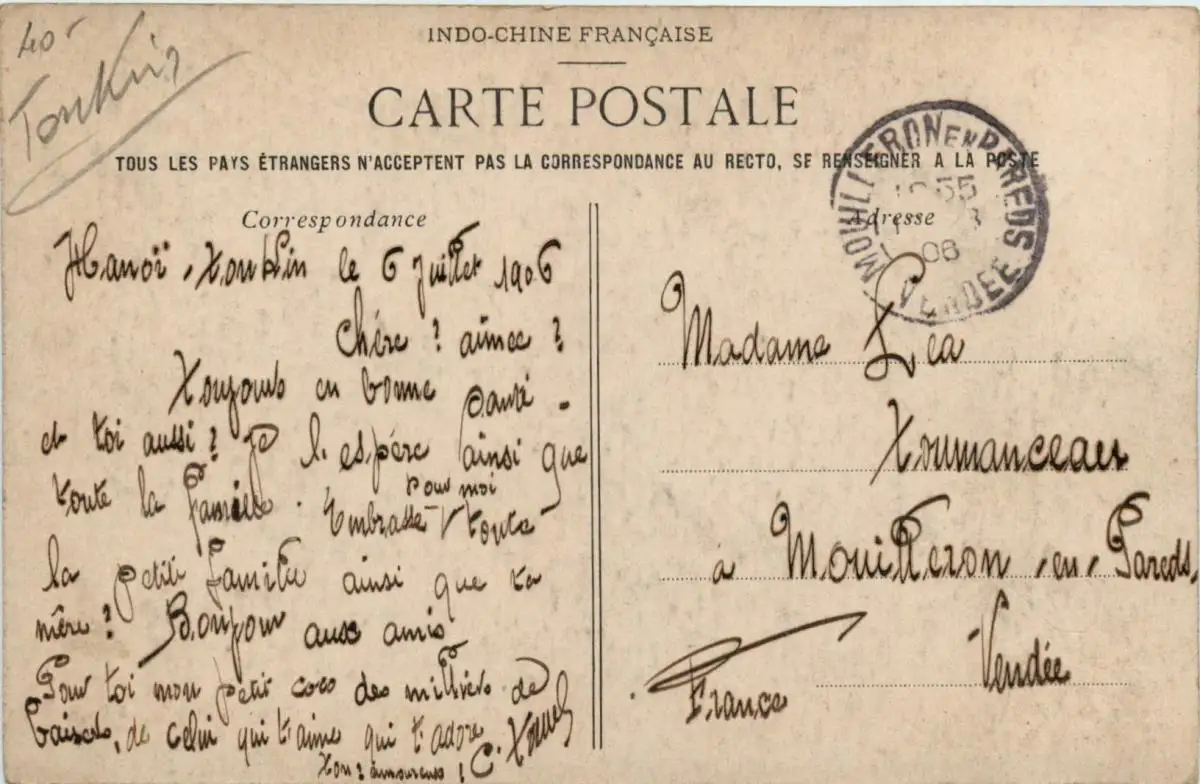 40-
Tonkin
INDO-CHINE FRANÇAISE
CARTE POSTALE
TOUS LES PAYS ÉTRANGERS N'ACCEPTENT PAS LA CORRESPONDANCE AU RECTO, SE RENSEIGNER A LA POSTE
Correspondance
Hanoï, Tonkin le 6 Juillet 1906
Chère ? aimee ?
Toujours en bonne santé -
et toi aussi ? je l'espère ainsi que
toute la famille. Embrasse pour moi toute
la petite famille ainsi que ta
mère ? Bonjour aux amis
Pour toi mon petit coco des milliers de
baisers, de celui qui t'aime qui t'adore
Ton ? amoureux ! C.
MOUILLERON EN PAREDS
VENDEE
06
Adresse
Madame Léa
à Mouilleron-en-Pareds,
Vendée
France